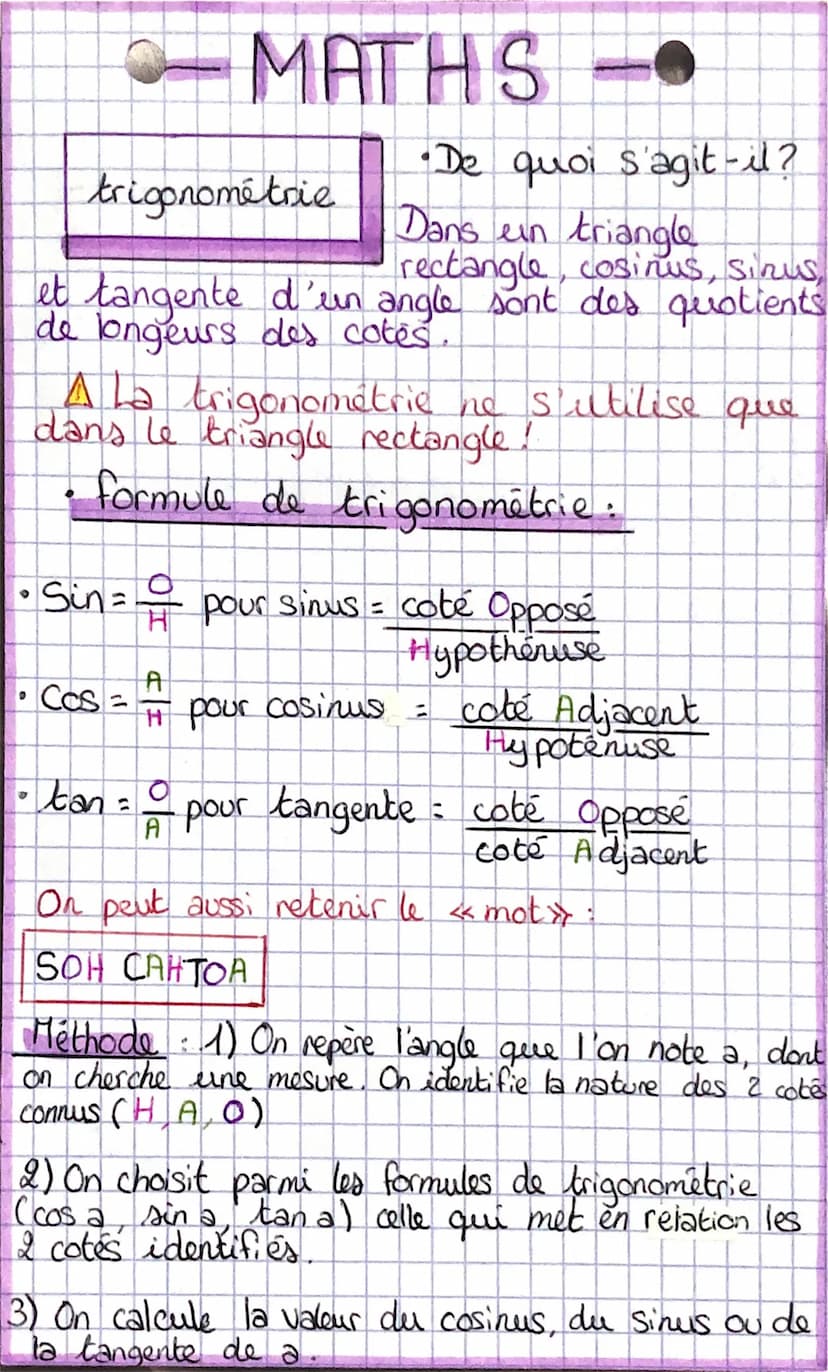 MATHS
trigonométrie
• De quoi s'agit-il?
Dans un triangle
rectangle, cosinus, sinus,
et tangente d'un angle sont des quotients
de longeurs des cotés.
⚠ La trigonométrie ne s'utilise que
dans le triangle rectangle!
• formule de trigonométrie :
• Sin = O/H pour sinus = coté Opposé / Hypothénuse
• Cos = A/H pour cosinus = coté Adjacent / Hypoténuse
• tan = O/A pour tangente = coté Opposé / coté Adjacent
On peut aussi retenir le « mot » :
SOH CAHTOA
Méthode : 1) On repère l'angle que l'on note a, dont
on cherche une mesure. On identifie la nature des 2 cotés
connus (H, A, O)
2) On choisit parmi les formules de trigonométrie
(cos a, sin a, tan a) celle qui met en relation les
2 cotés identifiés.
3) On calcule la valeur du cosinus, du sinus ou de
la tangente de a.